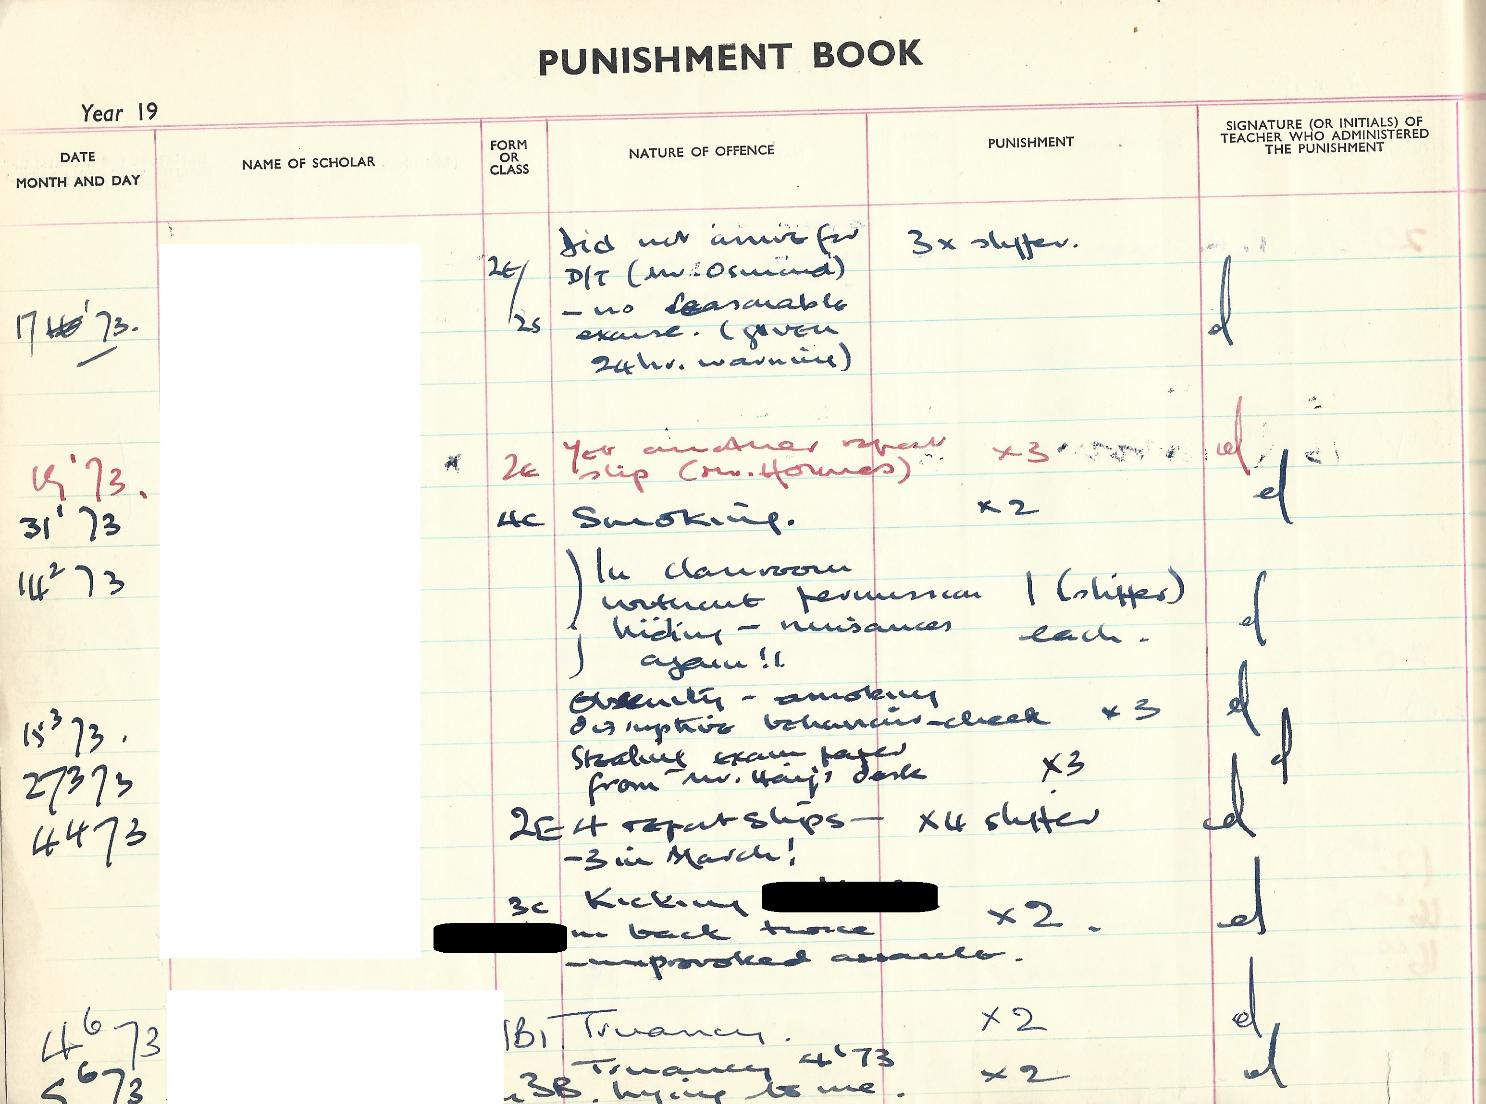 PUNISHMENT BOOK
Year 19
DATE
MONTH AND DAY
NAME OF SCHOLAR
FORM
OR
CLASS
NATURE OF OFFENCE
PUNISHMENT
SIGNATURE (OR INITIALS) OF
TEACHER WHO ADMINISTERED
THE PUNISHMENT
17 '73.
2E/
2S
Did not arrive for
D/T (Mr. Osmund)
- no reasonable
excuse. (given
24 hr. warning)
3x slipper.
19 1 73.
2E
Yet another repeat
slip (Mr. Holmes)
x3
31 1 73
4C
Smoking.
x2
14 2 73
In classroom
without permission
hiding - nuisances
again!!
1 (slipper)
each.
15 3 73.
Obscenity - smoking
disruptive behaviour - cheek
x3
27 3 73
Stealing exam paper
from Mr. desk
x3
4 4 73
2E
4 repeat slips -
- 3 in March!
x4 slipper
3C
Kicking
in back twice
- unprovoked assault.
x2.
4 6 73
1B1
Truancy.
x2
5 6 73
3B.
Truancy 4 6 73
lying to me.
x2